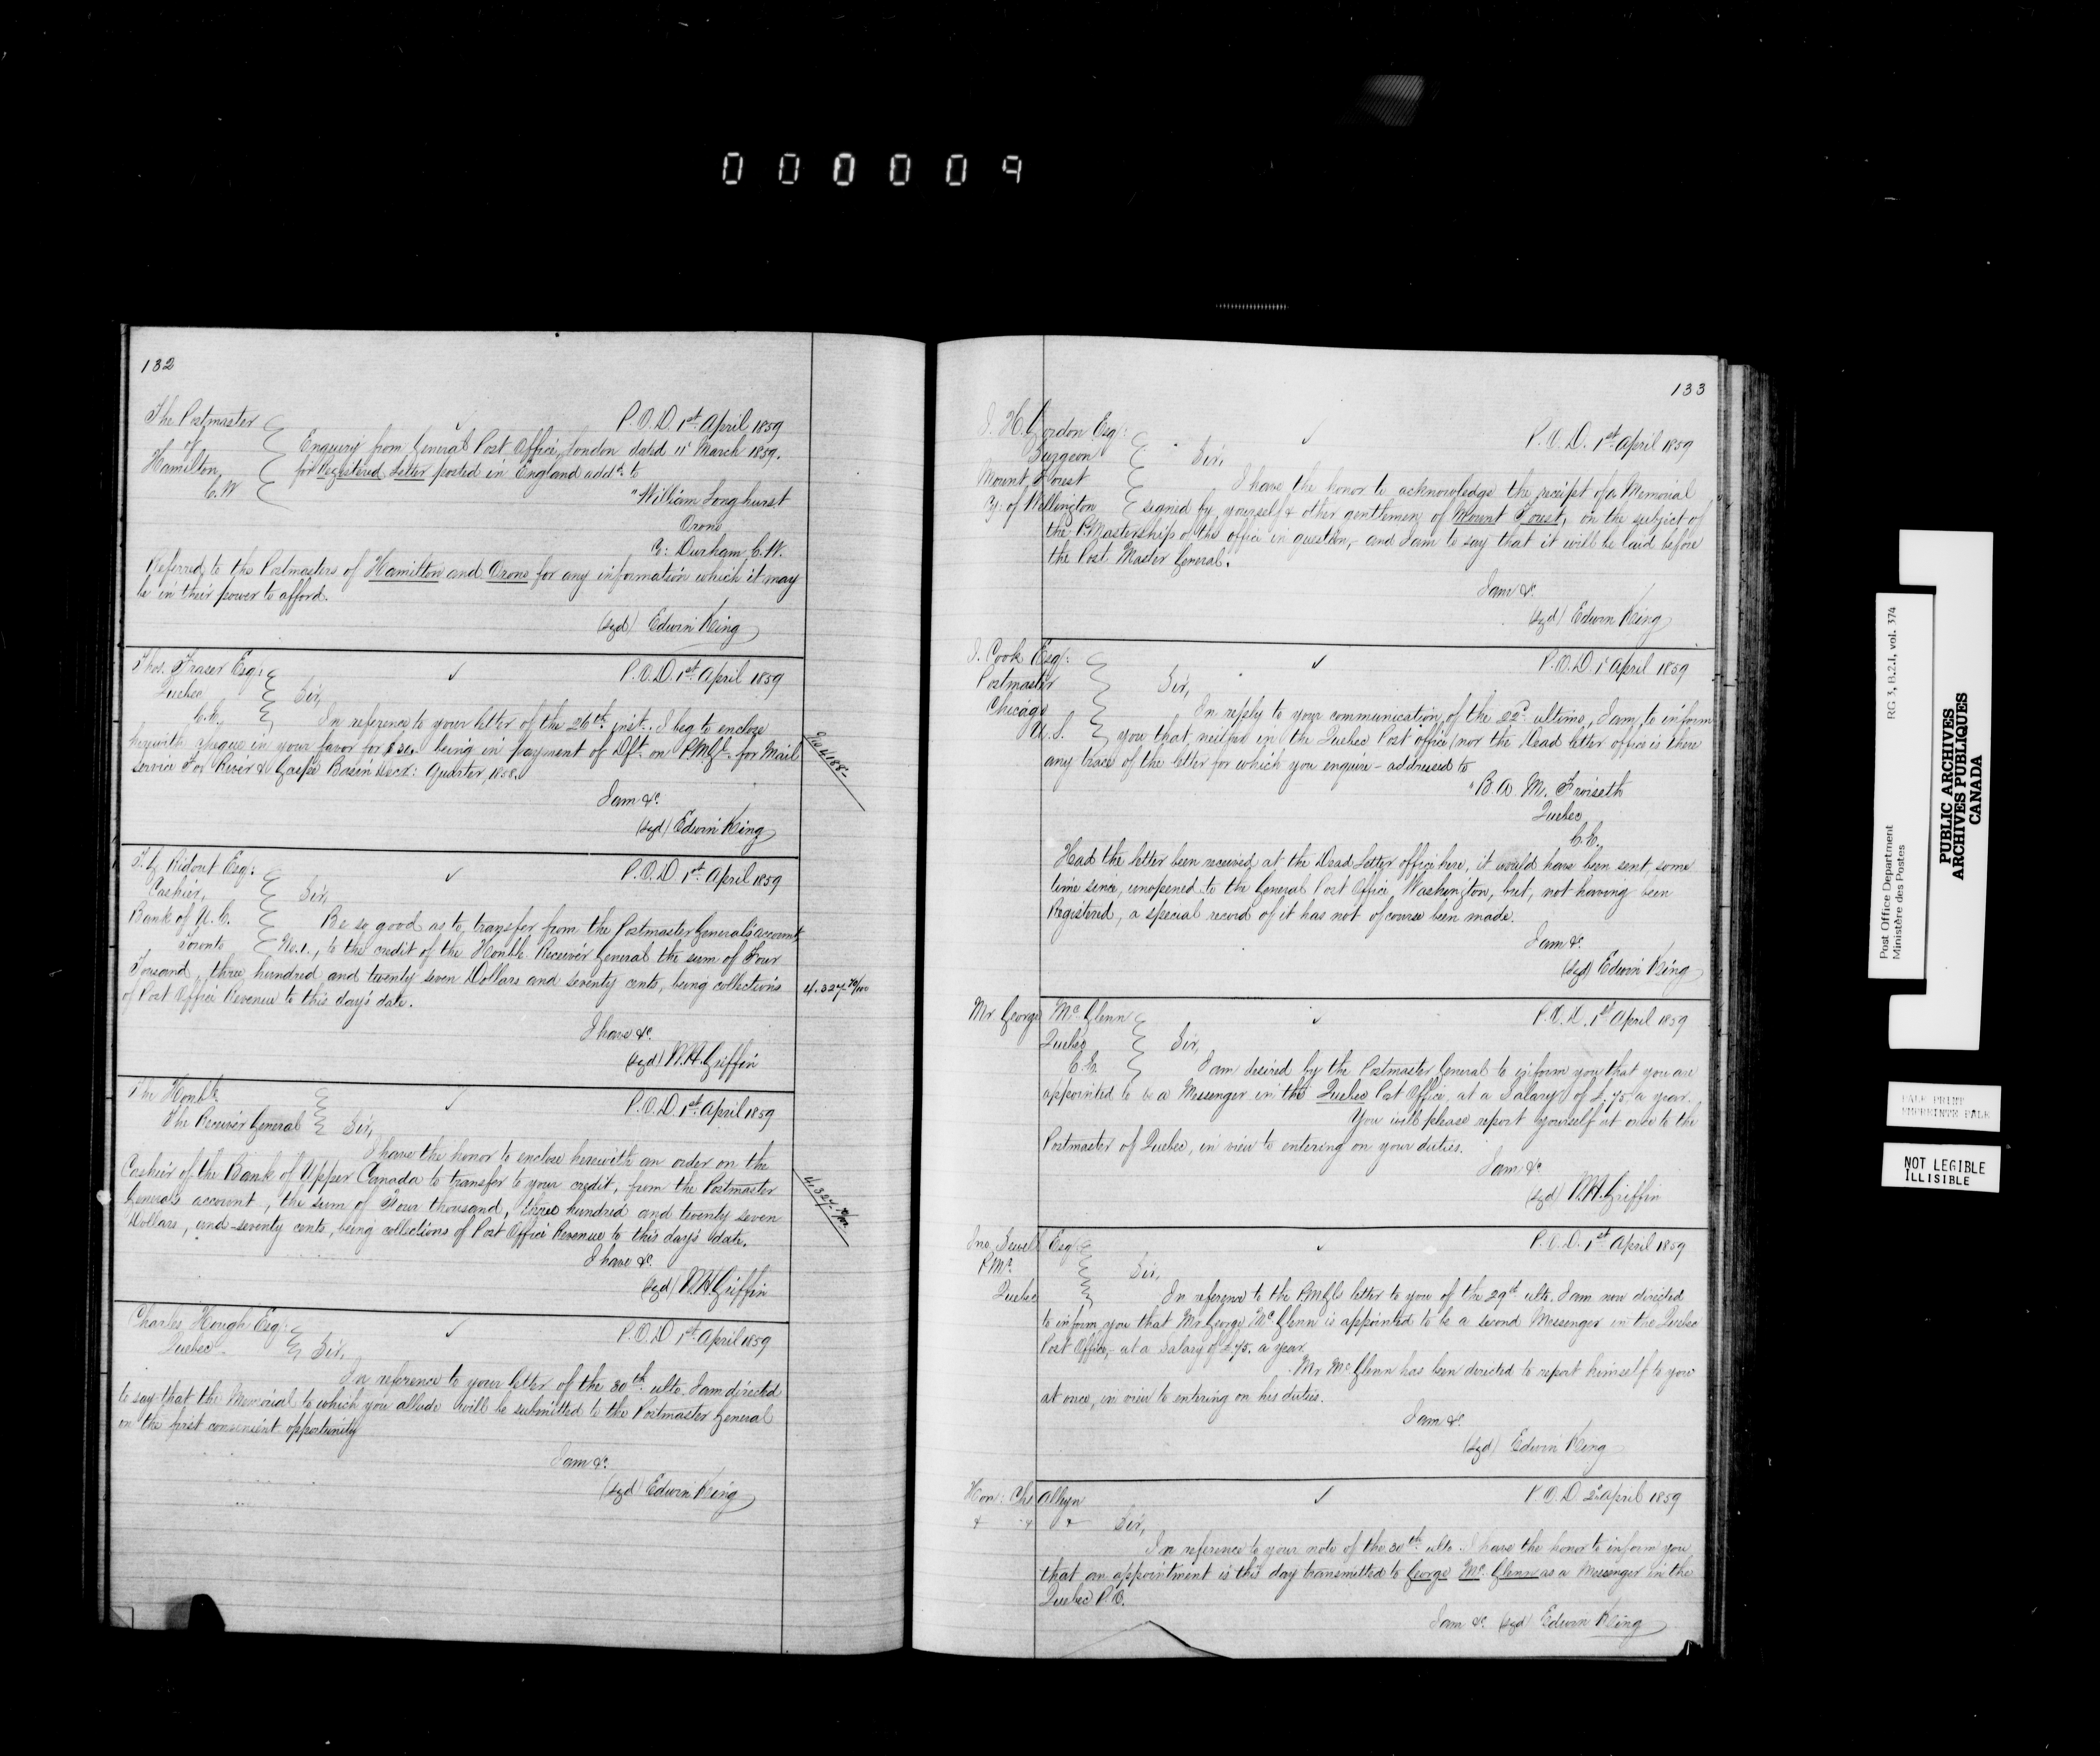 000009
132
The Postmaster
of
Hamilton,
C.W
P.O.D. 1st April 1859
Enquiry from General Post Office, London dated 11' March 1859.
for Registered Letter posted in England addd. to
"William Longhurst
Orono
Co: Durham C.W.
Referred to the Postmasters of Hamilton and Orono for any information which it may
be in their power to afford.
(sgd) Edwin King
Thos. Fraser Esq:
Quebec
C.E.
P.O.D. 1st April 1859
Sir,
In reference to your letter of the 26th inst. I beg to enclose
herewith cheque in your favor for $34. being in payment of Dft. on P.M.Gl. for Mail
Service Fox River & Gaspé Basin Decr: Quarter, 1858.
No 4188-
I am &c.
(sgd) Edwin King
T.G. Ridout Esq:
Cashier,
Bank of U.C.
Toronto
P.O.D. 1st April 1859
Sir,
Be so good as to transfer from the Postmaster General's account
No. 1., to the credit of the Honble. Receiver General the sum of Four
Tousand, three hundred and twenty seven Dollars and seventy cents, being collections
of Post Office Revenue to this day's date.
4.327-70/100
I have &c.
(sgd) W.H. Griffin
The Honble.
The Receiver General
P.O.D. 1st April 1859
Sir,
I have the honor to enclose herewith an order on the
Cashier of the Bank of Upper Canada to transfer to your credit, from the Postmaster
Generals account, the sum of Four thousand, three hundred and twenty seven
Dollars, and seventy cents, being collections of Post Office Revenue to this day's date.
4.327-70/100.
I have &c.
(sgd) W.H. Griffin
Charles Hough Esq:
Quebec
P.O.D 1st April 1859
Sir,
In reference to your letter of the 30th ulto. I am directed
to say that the Memorial to which you allude will be submitted to the Postmaster General
on the first convenient opportunity
I am &c.
(sgd) Edwin King
133
J. H. Gordon Esq:
Surgeon
Mount Forest
Co: of Wellington
P.O.D. 1st April 1859
Sir,
I have the honor to acknowledge the receipt of a Memorial
signed by yourself & other gentlemen of Mount Forest, on the subject of
the P.Mastership of the office in question, and I am to say that it will be laid before
the Post Master General.
I am &c.
(sgd) Edwin King
J. Cook Esq:
Postmaster
Chicago
U.S.
P.O.D. 1' April 1859
Sir,
In reply to your communication of the 22d ultimo, I am to inform
you that neither in the Quebec Post office, nor the Dead letter office is there
any trace of the letter for which you enquire - addressed to
"B. W. M. Froiseth
Quebec
C.E.
Had the letter been received at the Dead Letter office here, it would have been sent some
time since, unopened to the General Post Office, Washington, but, not having been
Registered, a special record of it has not of course been made.
I am &c.
(sgd) Edwin King
Mr. George McGlenn
Quebec
C.E.
P.O.D. 1st April 1859
Sir,
I am desired by the Postmaster General to inform you that you are
appointed to be a Messenger in the Quebec Post Office, at a Salary of £.75. a year.
You will please report yourself at once to the
Postmaster of Quebec, in view to entering on your duties.
I am &c
(sgd) W.H. Griffin
Jno. Sewell Esq
P.Mr.
Quebec
P.O.D. 1st April 1859
Sir,
In reference to the P.M.Gls letter to you of the 29th ulto. I am now directed
to inform you that Mr. George McGlenn is appointed to be a second Messenger in the Quebec
Post Office, at a Salary of £75. a year.
Mr McGlenn has been directed to report himself to you
at once, in view to entering on his duties.
I am &c.
(sgd) Edwin King
Hon: Chs Alleyn
& & &
P.O.D 2d April 1859
Sir,
In reference to your note of the 30th ulto. I have the honor to inform you
that an appointment is this day transmitted to George McGlenn as a Messenger in the
Quebec P.O.
I am &c. (sgd) Edwin King
Post Office Department
Ministère des Postes
RG 3, B.2.I, vol. 374
PUBLIC ARCHIVES
ARCHIVES PUBLIQUES
CANADA
PALE PRINT
EMPREINTE PALE
NOT LEGIBLE
ILLISIBLE